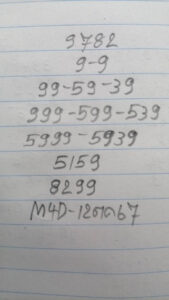 9782
9-9
99-59-39
999-599-539
5999-5939
5159
8299
M4D-12ตค67